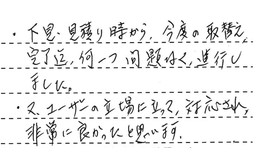 ・下見、見積り時から、今度の取替え
完了迄、何一つ問題なく、進行し
ました。
・又、ユーザーの立場に立って、対応され、
非常に良かったと思います。